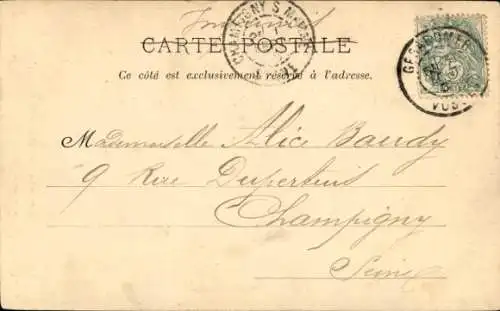 Imprimé
CHAMPIGNY S. MARNE
CARTE POSTALE
Ce côté est exclusivement réservé à l'adresse.
GERARDMER
5
VOSGES
Mademoiselle Alice Baudy
9 Rue Duperteuis
Champigny
Seine